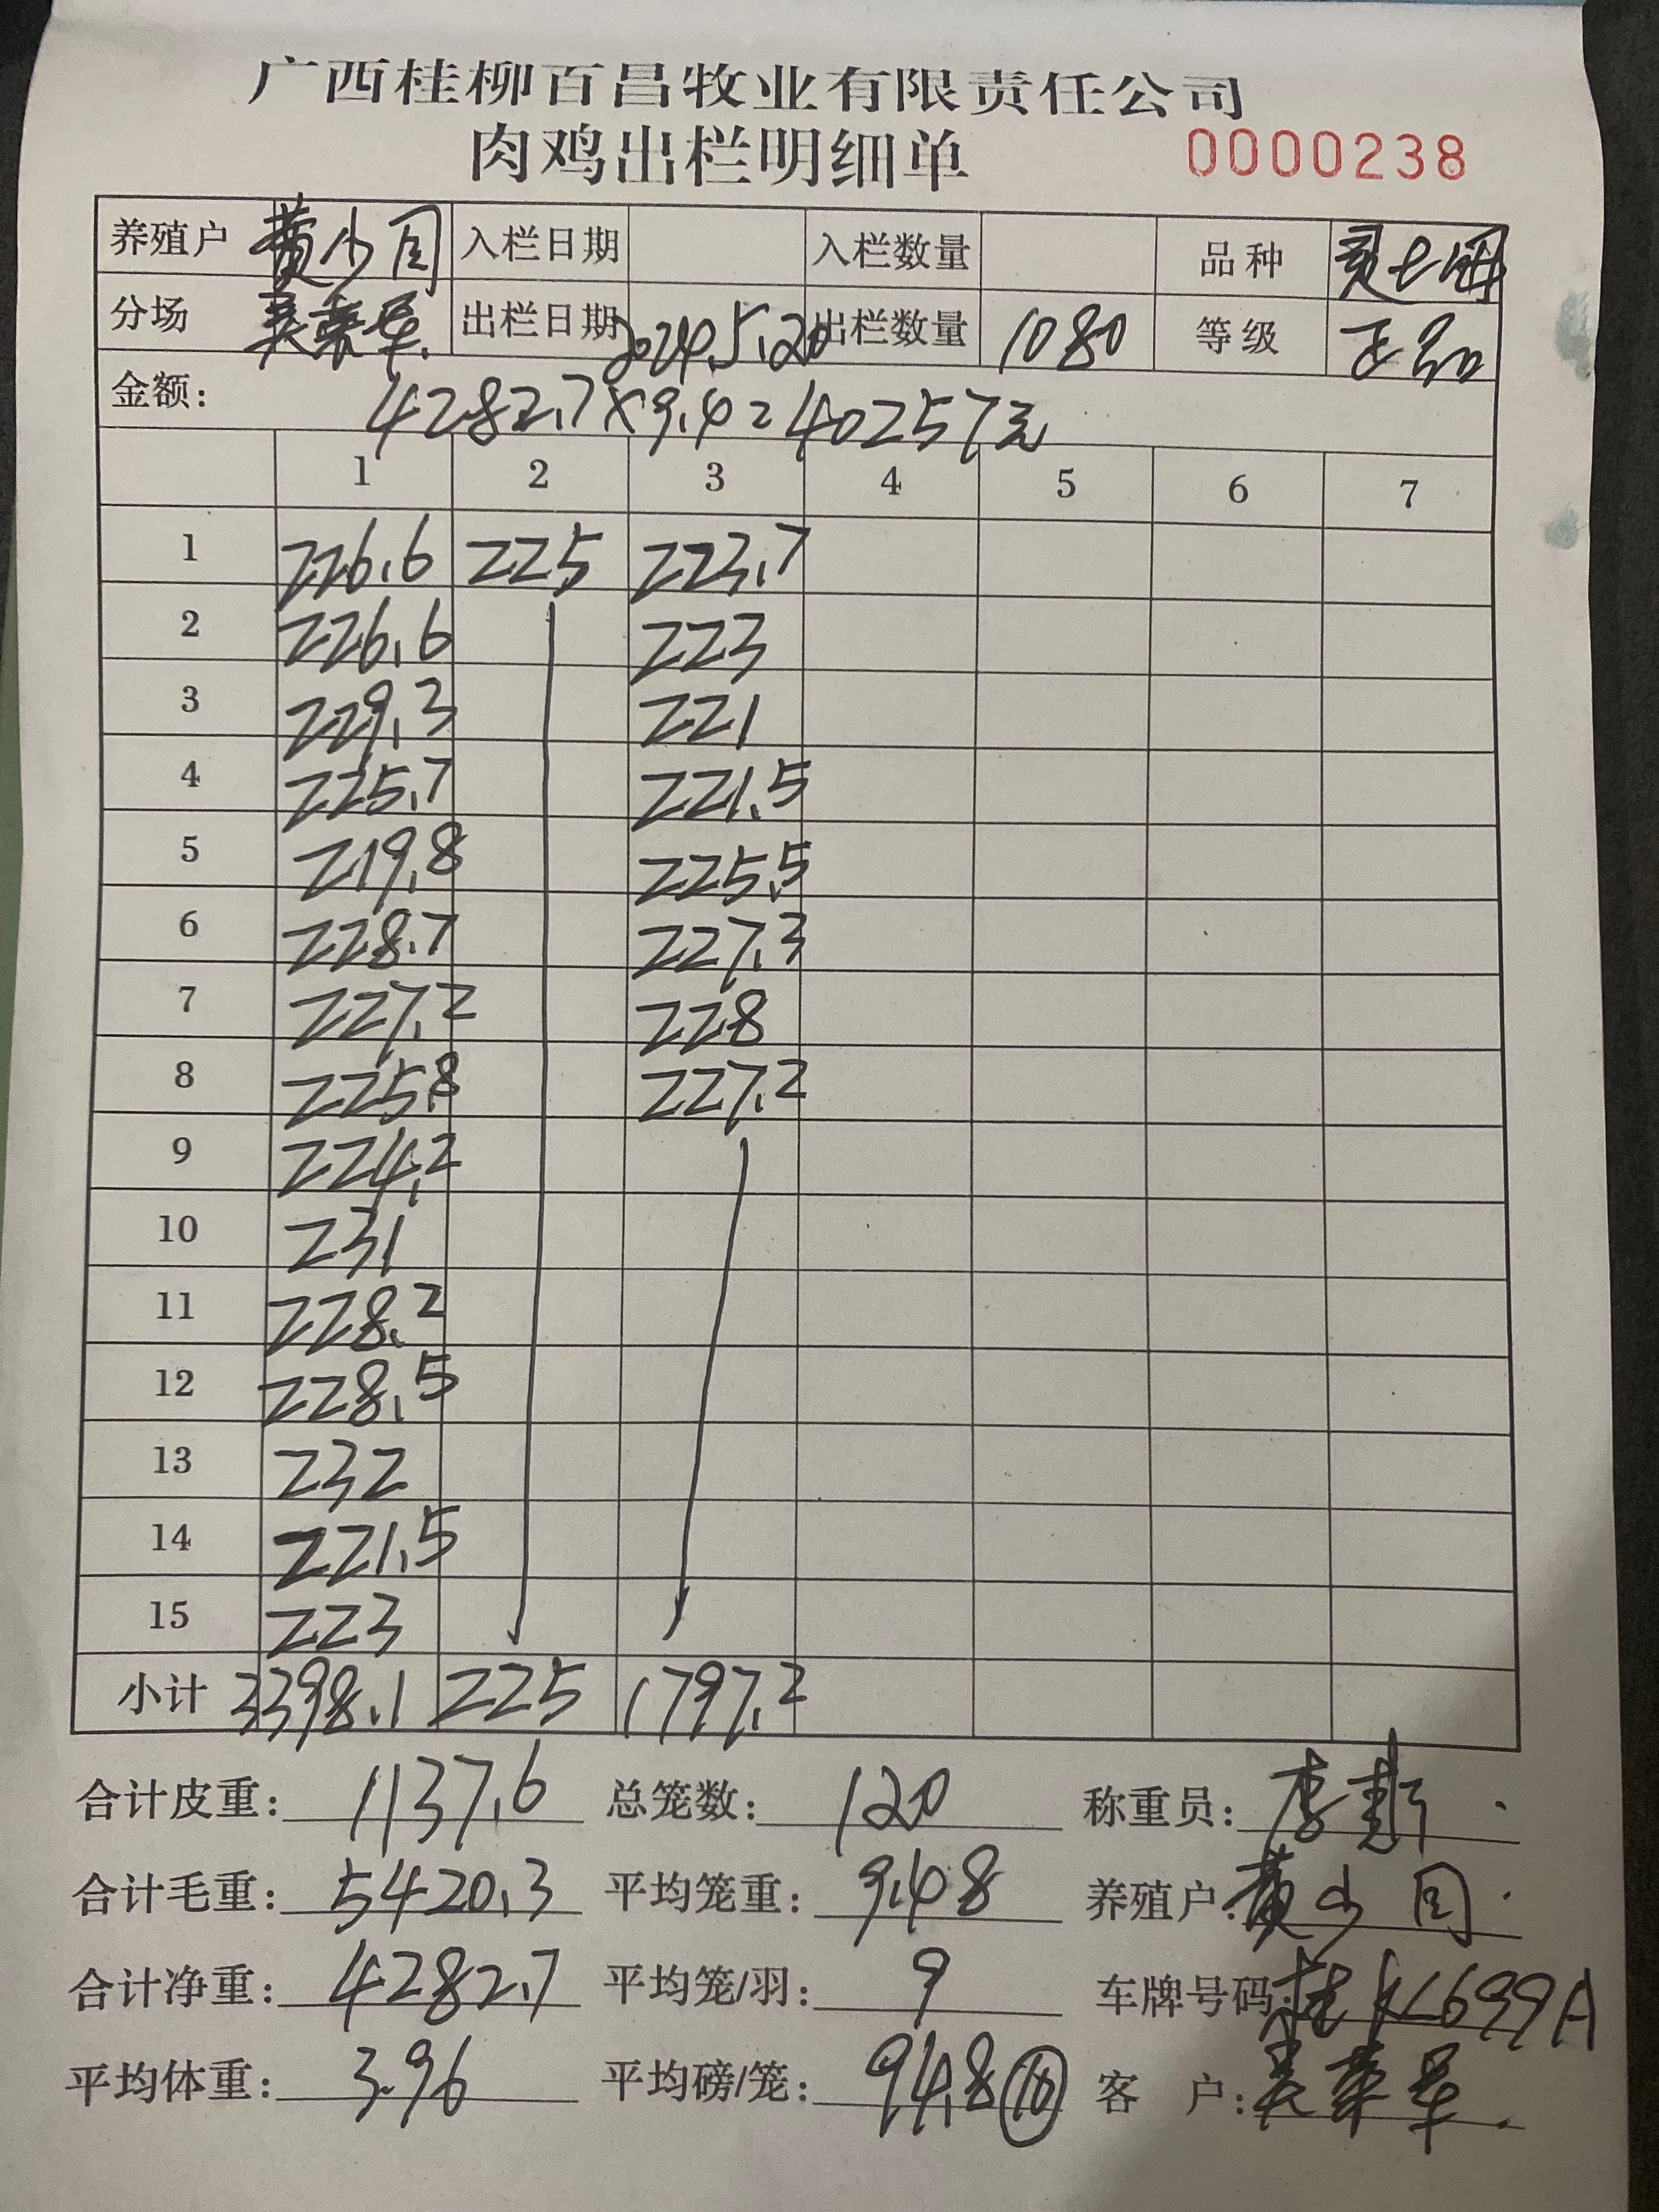 广西桂柳百昌牧业有限责任公司
肉鸡出栏明细单 0000238
养殖户 黄少同 入栏日期 入栏数量 品种
分场 出栏日期 2024.5.20 出栏数量 1080 等级 正品
金额: 4282.7×9.4=40257元
1 2 3 4 5 6 7
1 226.6 225 223.7
2 226.6 223
3 229.3 221
4 225.7 221.5
5 219.8 225.5
6 228.7 227.3
7 227.2 228
8 225.8 227.2
9 224.2
10 231
11 228.2
12 228.5
13 232
14 221.5
15 223
小计 3398.1 225 1797.2
合计皮重: 1137.6 总笼数: 120 称重员: 李
合计毛重: 5420.3 平均笼重: 9.48 养殖户: 黄少同
合计净重: 4282.7 平均笼/羽: 9 车牌号码: 桂KL699A
平均体重: 3.96 平均磅/笼: 94.8 10 客户: